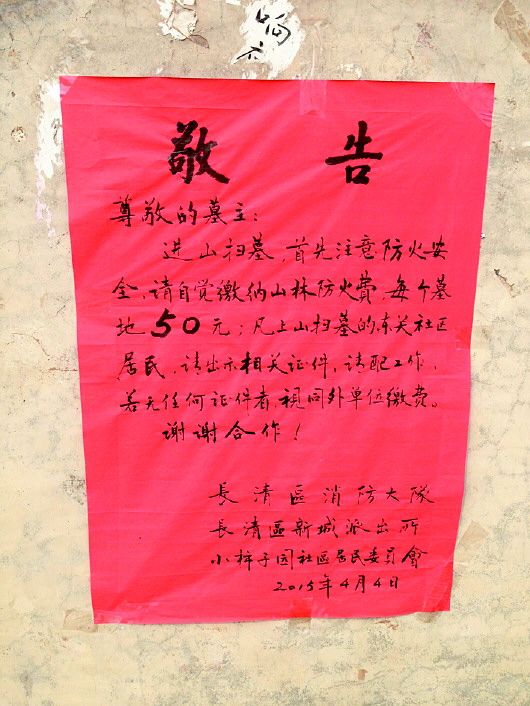 敬告
尊敬的墓主：
进山扫墓，首先注意防火安
全，请自觉缴纳山林防火费，每个墓
地50元；凡上山扫墓的东关社区
居民，请出示相关证件，请配工作，
若无任何证件者，視同外单位缴费。
谢谢合作！
長清區消防大隊
長清區新城派出所
小梓子园社區居民委員會
2015年4月4日